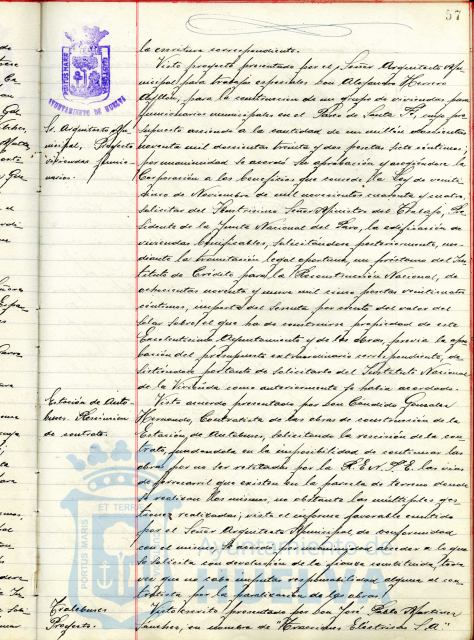 57
la escritura correspondiente.
Visto proyecto presentado por el Señor Arquitecto Mu-
nicipal para trabajos especiales Don Alejandro Herrero
Ayllón, para la construcción de un grupo de viviendas para
funcionarios municipales en el Paseo de Santa Fé, cuyo pre-
supuesto asciende a la cantidad de un millón doscientas
noventa mil doscientas treinta y dos pesetas, siete céntimos,
por unanimidad se acordó su aprobación y acogiéndose la
Corporación a los beneficios que concede la Ley de veinti-
cinco de Noviembre de mil novecientos cuarenta y cuatro,
solicitar del Ilustrísimo Señor Ministro del Trabajo, Pre-
sidente de la Junta Nacional del Paro, la edificación de
viviendas bonificables, solicitándose posteriormente, me-
diante la tramitación legal oportuna, un préstamo del Ins-
tituto de Crédito para la Reconstrucción Nacional, de
ochocientas noventa y nueve mil cinco pesetas veinticuatro
céntimos, importe del sesenta por ciento del valor del
solar sobre el que ha de construirse propiedad de este
Excelentísimo Ayuntamiento y de las obras, previa la apro-
bación del presupuesto extraordinario correspondiente, de-
sistiendo por tanto de solicitarlo del Instituto Nacional
de la Vivienda como anteriormente se había acordado.
Visto acuerdo presentado por Don Cándido González
Hernando, Contratista de las obras de construcción de la
Estación de Autobuses, solicitando la rescisión de la con-
trata, fundándola en la imposibilidad de continuar las
obras por no ser retiradas por la R.E.N.F.E. las vías
de ferrocarril que existen en la parcela de terreno donde
se realizan las mismas, no obstante las múltiples ges-
tiones realizadas; visto el informe favorable emitido
por el Señor Arquitecto Municipal, de conformidad
con el mismo, se acordó por unanimidad acceder a lo que
se solicita y la devolución de la fianza constituida, toda
vez que no cabe imputar responsabilidad alguna al con-
tratista por la paralización de las obras.
Visto escrito presentado por Don José Pablo Martínez
Sánchez, en nombre de "Tracciones Eléctricas S.A."
PORTUS MARIS
AYUNTAMIENTO DE HUELVA
Sr. Arquitecto Mu-
nicipal, Proyecto
viviendas funcio-
narios.
Estación de Auto-
buses. Rescisión
de contrato.
Trolebuses.
Proyecto.
PORTUS MARIS ET TERRAE
Ayuntamiento de
HUELVA